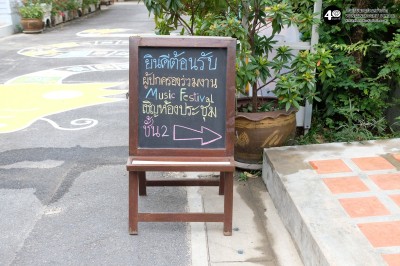 ยินดีต้อนรับ
ผู้ปกครองร่วมงาน
Music Festival
เชิญห้องประชุม
ชั้น 2